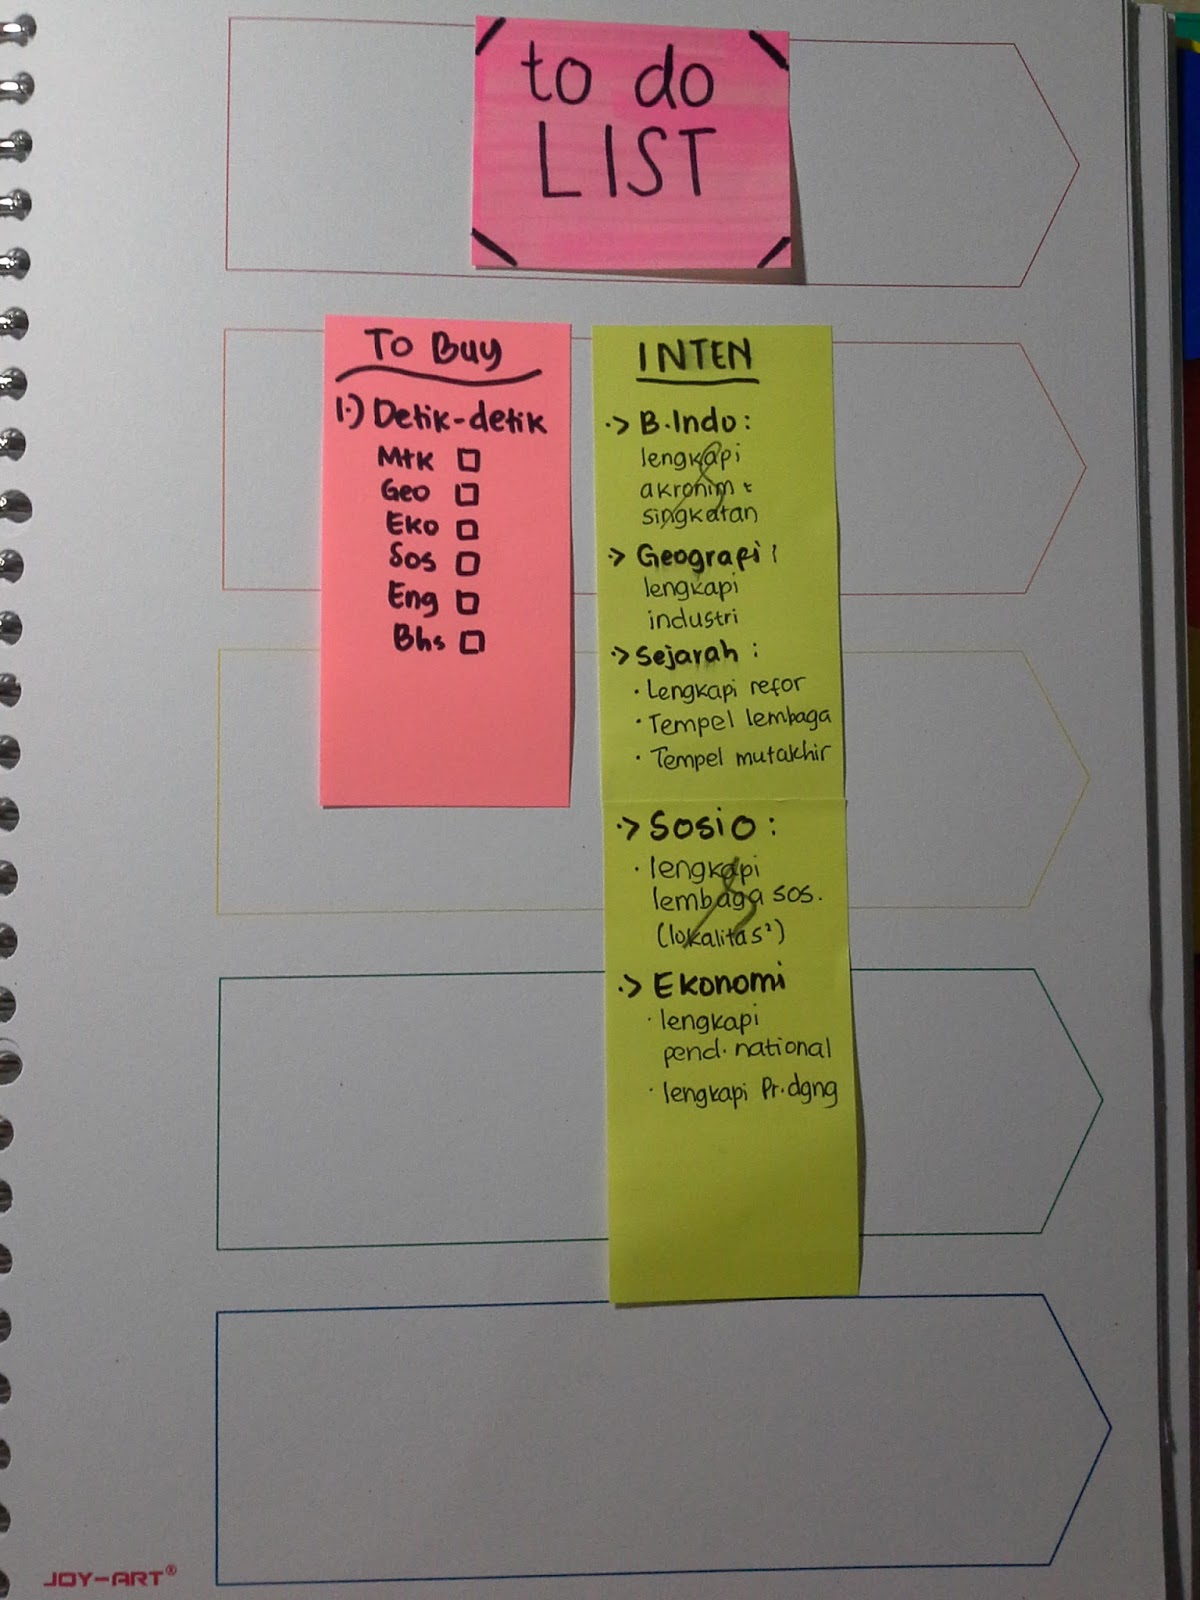 to do
LIST
TO Buy
1.) Detik-detik
Mtk
Geo
Eko
Sos
Eng
Bhs
INTEN
-> B.Indo:
lengkapi
akronim &
singkatan
-> Geografi:
lengkapi
industri
-> Sejarah:
• Lengkapi refor
• Tempel lembaga
• Tempel mutakhir
-> Sosio:
• lengkapi
lembaga sos.
(lokalitas²)
-> Ekonomi
• lengkapi
pend. national
• lengkapi Pr.dgng
JOY-ART®